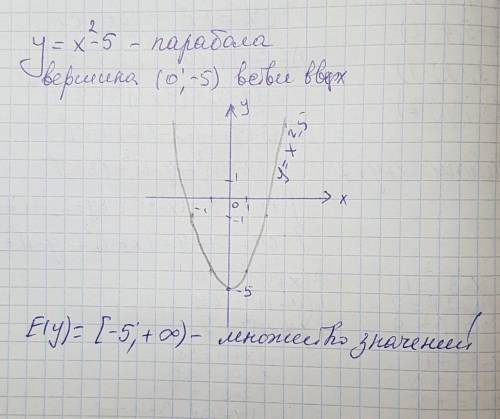 y = x² - 5 - парабола
вершина (0; -5) ветви вверх
y
1
-1 0 1 x
-1
-5
E(y) = [-5; +∞) - множество значений